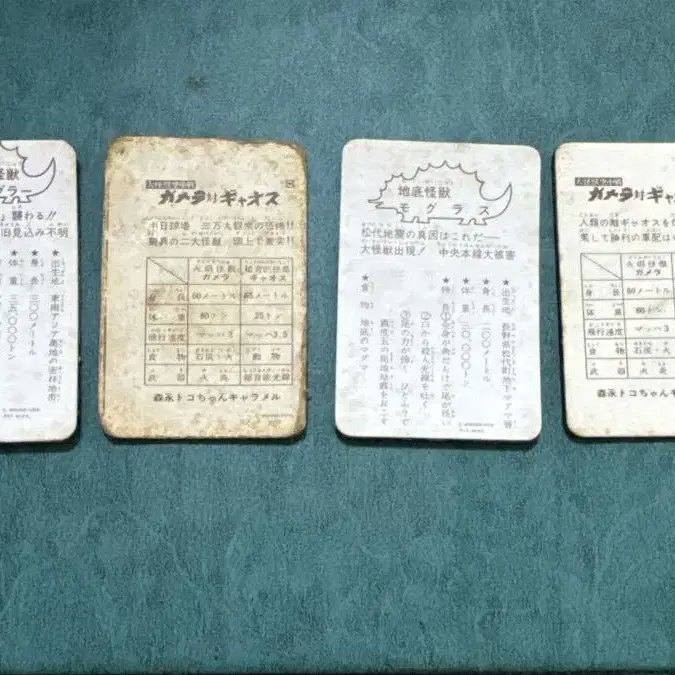 怪獣
グラー
」襲わる!!
旧見込み不明
★出生地 東南アジア奥地の密林地街
★身長 三〇〇メートル
★体重 三五〇〇〇トン
大怪獣空中戦
ガメラ対ギャオス
中日球場 三万大観衆の恐怖!!
驚異の二大怪獣 頭上で激突!!
火焔怪獣 ガメラ
超音波怪獣 ギャオス
身長 60メートル 65メートル
体重 80トン 25トン
飛行速度 マッハ3 マッハ3.5
食物 石炭・火 動物
武器 火炎 超音波光線
森永トコちゃんキャラメル
地底怪獣
モグラス
松代地震の真因はこれだ——
大怪獣出現! 中央本線大被害
★出生地 長野県松代町地下マグマ層
★身長 二〇〇メートル
★体重 三〇〇〇〇トン
★特長 ①全身が角だらけで尾が長い
②口から殺人光線を吐く
③尾の力が強く ひとふりで
震度五の局地地震をおこす
★食物 地底のマグマ
大怪獣空中戦
ガメラ対
人類の敵ギャオスを
果して勝利の軍配は
火焔怪獣
ガメラ
身長 60メートル
体重 80トン
飛行速度 マッハ3
食物 石炭・火
武器 火炎
森永トコちゃん